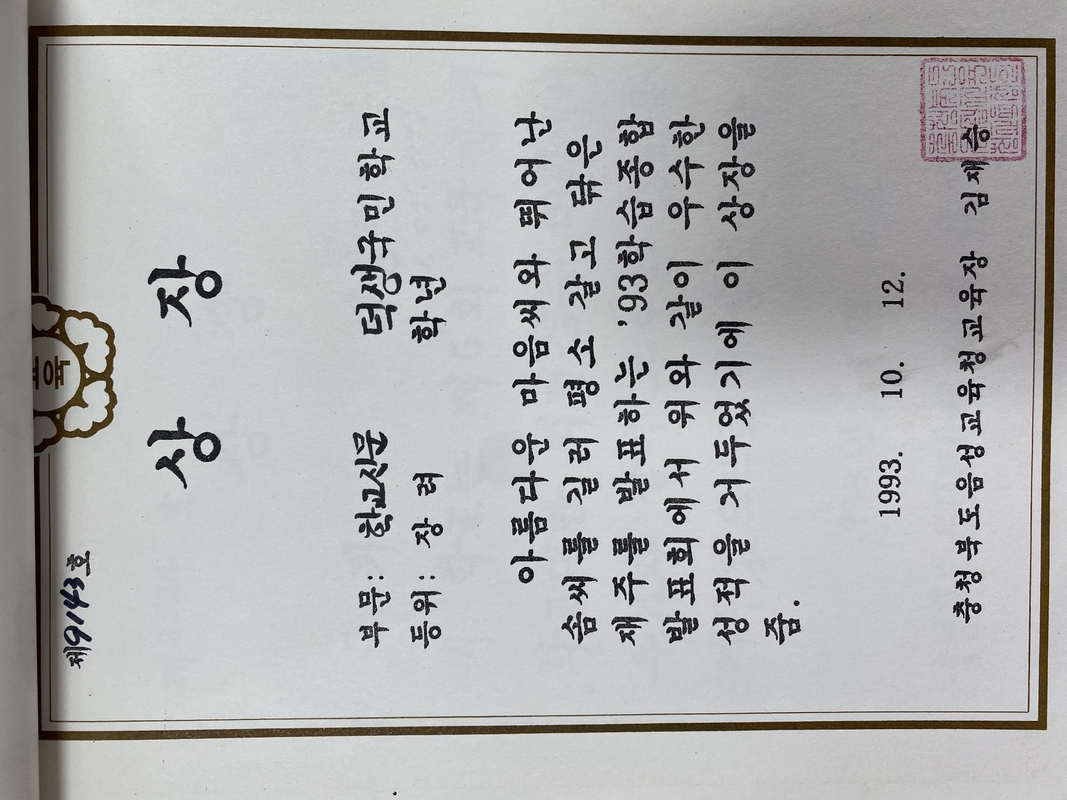 교육
제9143호
상장
부문: 학교신문 덕생국민학교
등위: 장려 학년
아름다운 마음씨와 뛰어난
솜씨를 길러 평소 갈고 닦은
재주를 발표하는 '93학습종합
발표회에서 위와 같이 우수한
성적을 거두었기에 이 상장을
줌.
1993. 10. 12.
충청북도음성교육청교육장 김재승